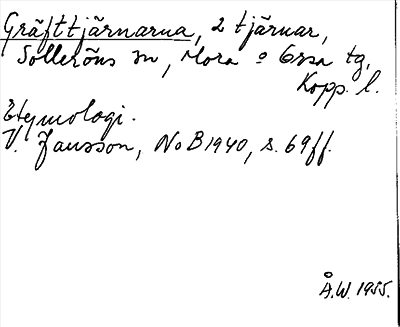 Gräfttjärnarna, 2 tjärnar,
Solleröns sn, Mora o Orsa tg,
Kopp. l.
Etymologi.
V. Jansson, NoB 1940, s. 69ff.
Å.W. 1955.